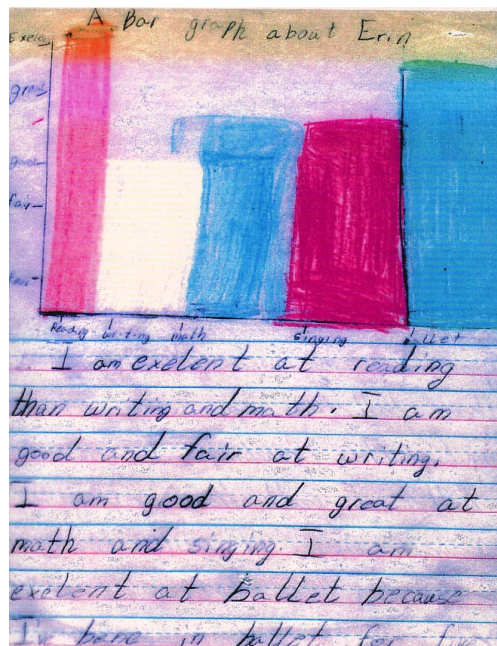 A Bar graph about Erin
Exelent
great
good
fair
Reading writing math singing ballet
I am exelent at reading
than writing and math. I am
good and fair at writing.
I am good and great at
math and singing. I am
exelent at ballet because
I've bene in ballet for five